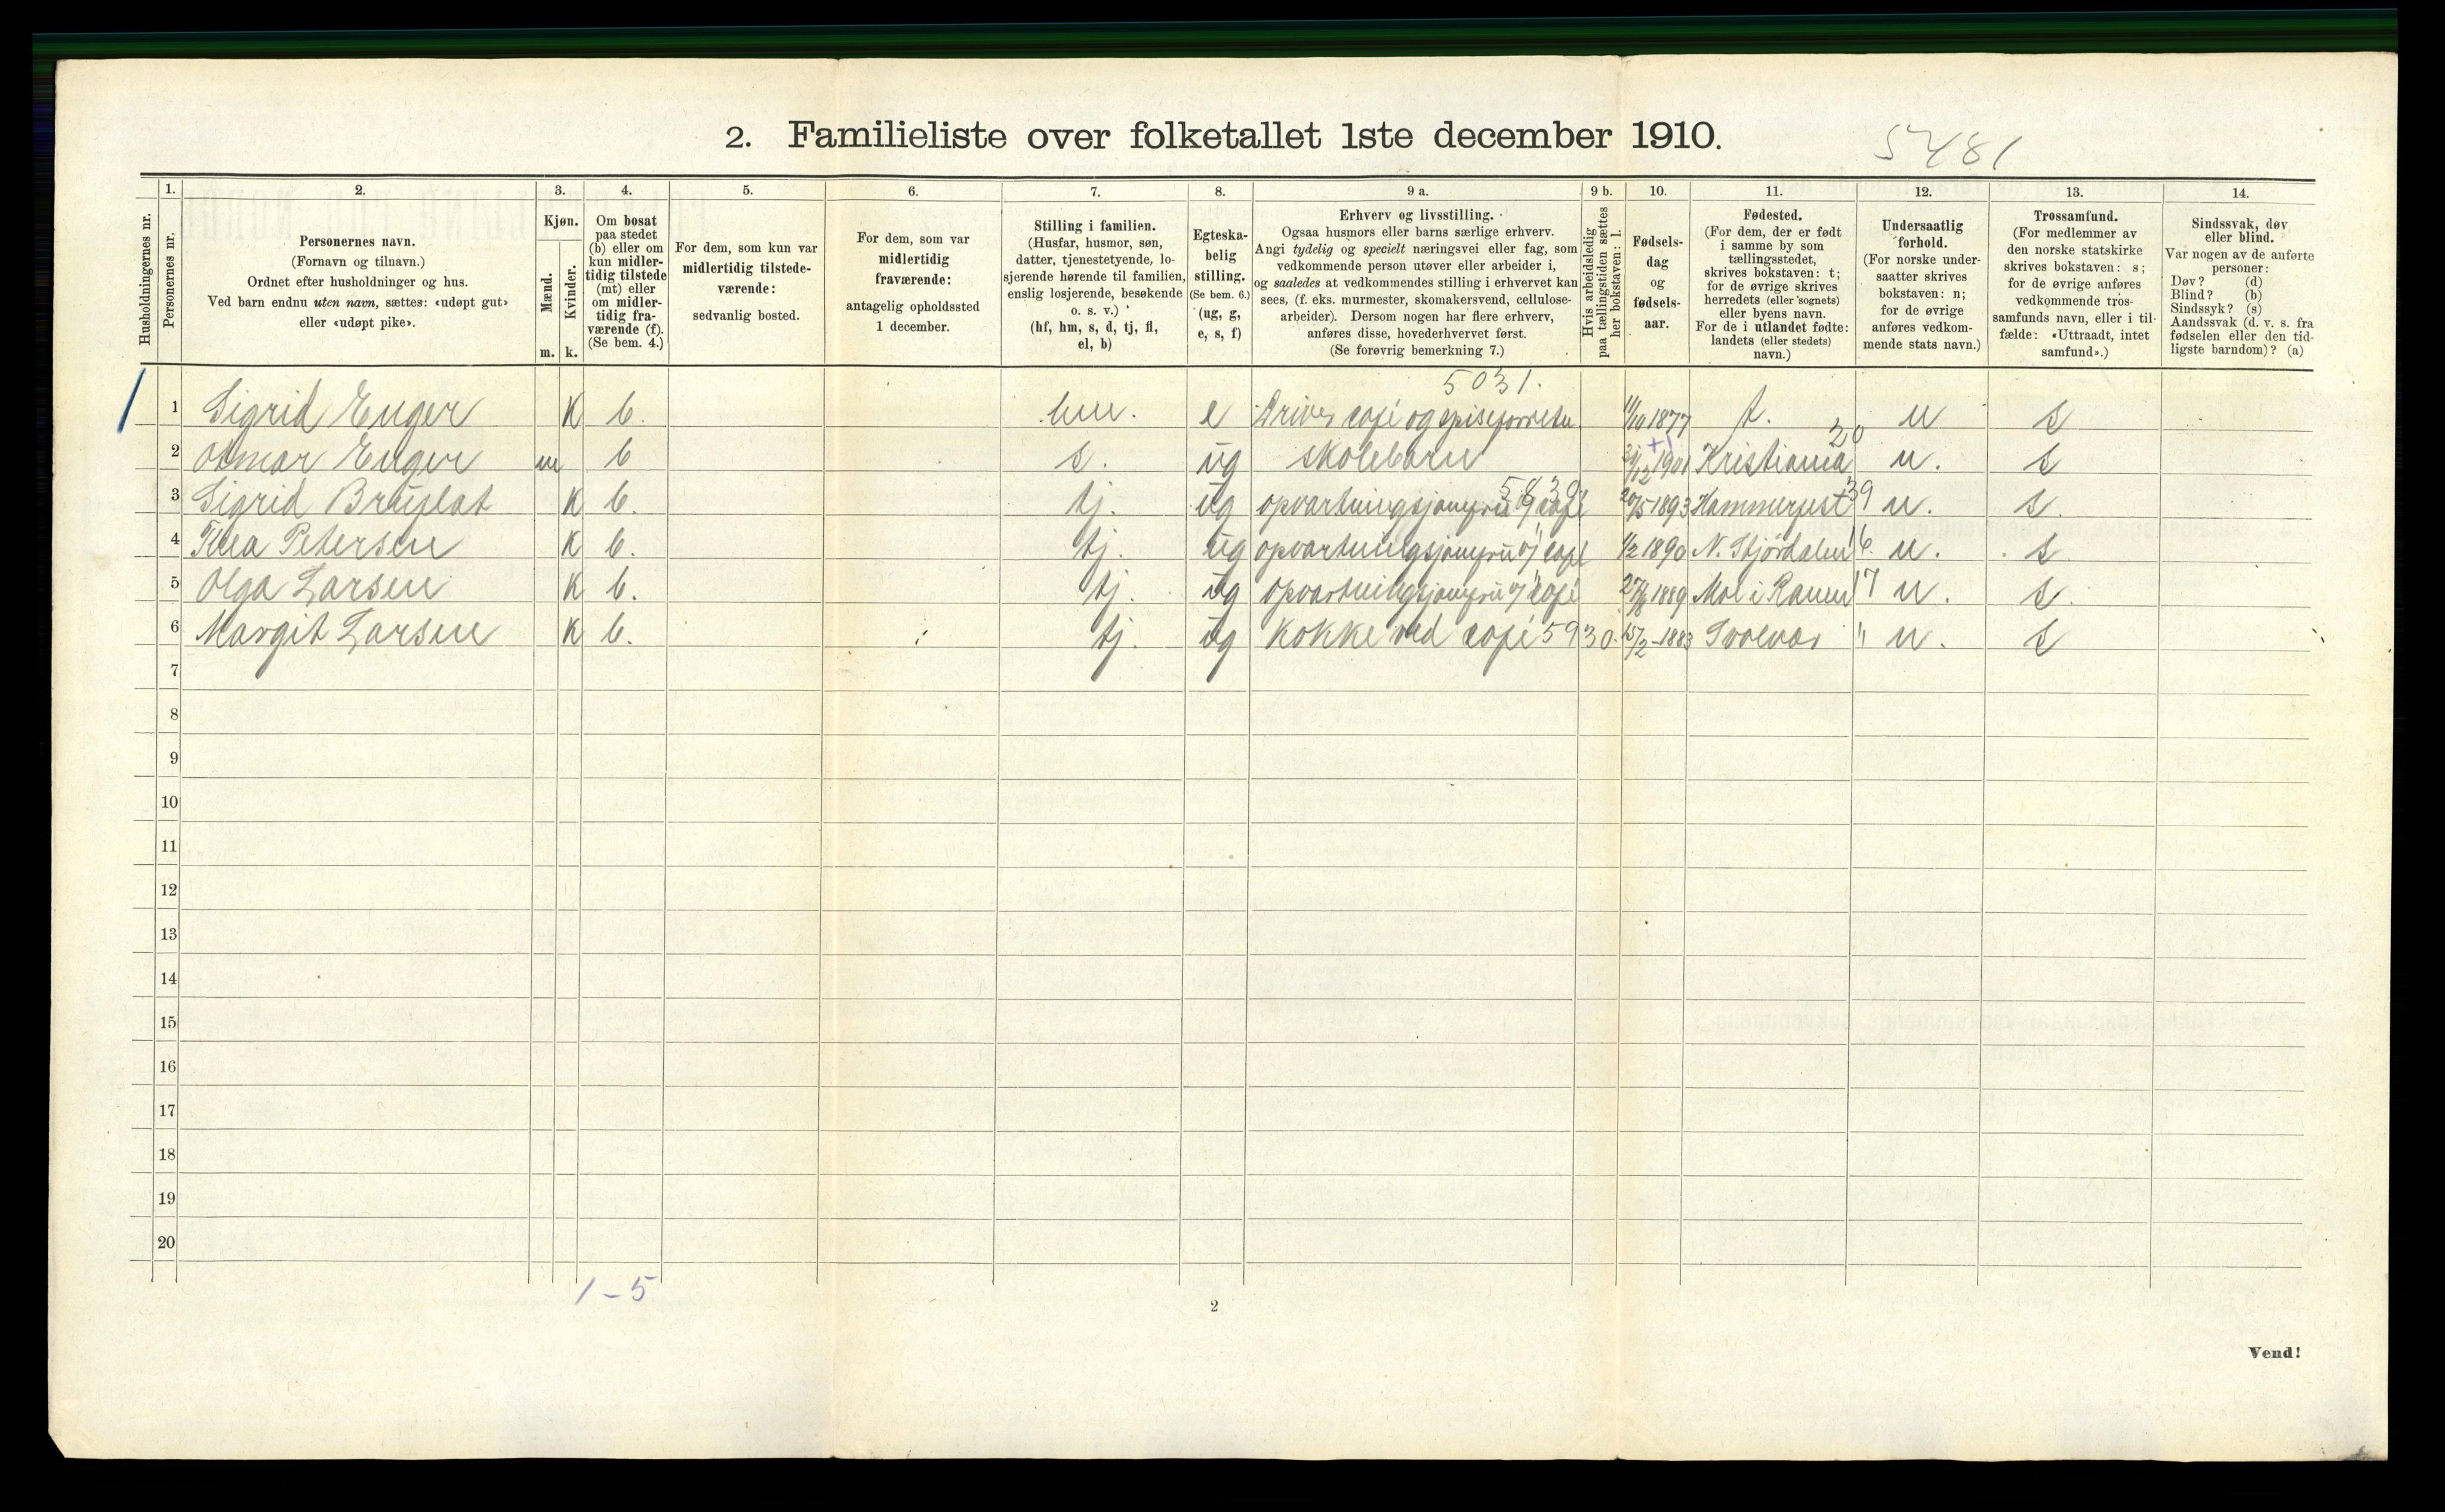 2. Familieliste over folketallet 1ste december 1910.
5481
Husholdningernes nr.
1. Personernes nr.
2. Personernes navn.
(Fornavn og tilnavn.)
Ordnet efter husholdninger og hus.
Ved barn endnu uten navn, sættes: «udøpt gut»
eller «udøpt pike».
3. Kjøn.
Mænd. m.
Kvinder. k.
4. Om bosat
paa stedet
(b) eller om
kun midler-
tidig tilstede
(mt) eller
om midler-
tidig fra-
værende (f).
(Se bem. 4.)
5. For dem, som kun var
midlertidig tilstede-
værende:
sedvanlig bosted.
6. For dem, som var
midlertidig
fraværende:
antagelig opholdssted
1 december.
7. Stilling i familien.
(Husfar, husmor, søn,
datter, tjenestetyende, lo-
sjerende hørende til familien,
enslig losjerende, besøkende
o. s. v.)
(hf, hm, s, d, tj, fl,
el, b)
8. Egteska-
belig
stilling.
(Se bem. 6.)
(ug, g,
e, s, f)
9 a. Erhverv og livsstilling.
Ogsaa husmors eller barns særlige erhverv.
Angi tydelig og specielt næringsvei eller fag, som
vedkommende person utøver eller arbeider i,
og saaledes at vedkommendes stilling i erhvervet kan
sees, (f. eks. murmester, skomakersvend, cellulose-
arbeider). Dersom nogen har flere erhverv,
anføres disse, hovederhvervet først.
(Se forøvrig bemerkning 7.)
9 b. Hvis arbeidsledig
paa tællingstiden sættes
her bokstaven: l.
10. Fødsels-
dag
og
fødsels-
aar.
11. Fødested.
(For dem, der er født
i samme by som
tællingsstedet,
skrives bokstaven: t;
for de øvrige skrives
herredets (eller sognets)
eller byens navn.
For de i utlandet fødte:
landets (eller stedets)
navn.)
12. Undersaatlig
forhold.
(For norske under-
saatter skrives
bokstaven: n;
for de øvrige
anføres vedkom-
mende stats navn.)
13. Trossamfund.
(For medlemmer av
den norske statskirke
skrives bokstaven: s;
for de øvrige anføres
vedkommende tros-
samfunds navn, eller i til-
fælde: «Uttraadt, intet
samfund».)
14. Sindssvak, døv
eller blind.
Var nogen av de anførte
personer:
Døv? (d)
Blind? (b)
Sindssyk? (s)
Aandssvak (d. v. s. fra
fødselen eller den tid-
ligste barndom)? (a)
5031.
1 1 Sigrid Enger K b. hm. e Driver café og spiseforretn 11/10 1877 t. n s
2 Osmar Enger m b s. ug skolebarn 1901 Kristiania 20 n. s
3 Sigrid K b. tj. ug opvartningsjomfru 20/5 1893 Hammerfest 39 n. s.
4 Thea Petersen K b. tj. ug opvartningsjomfru café 1/2 1890 N. Stjørdalen 16. n. s.
5 Olga Larsen K b. tj. ug opvartningsjomfru café 1889 Mol i Ranen 17 n. s.
6 Margit Larsen K b. tj. ug Kokke ved café 5930. 15/2-1883 Svolvær " n. s
7
8
9
10
11
12
13
14
15
16
17
18
19
20
1-5
2
Vend!